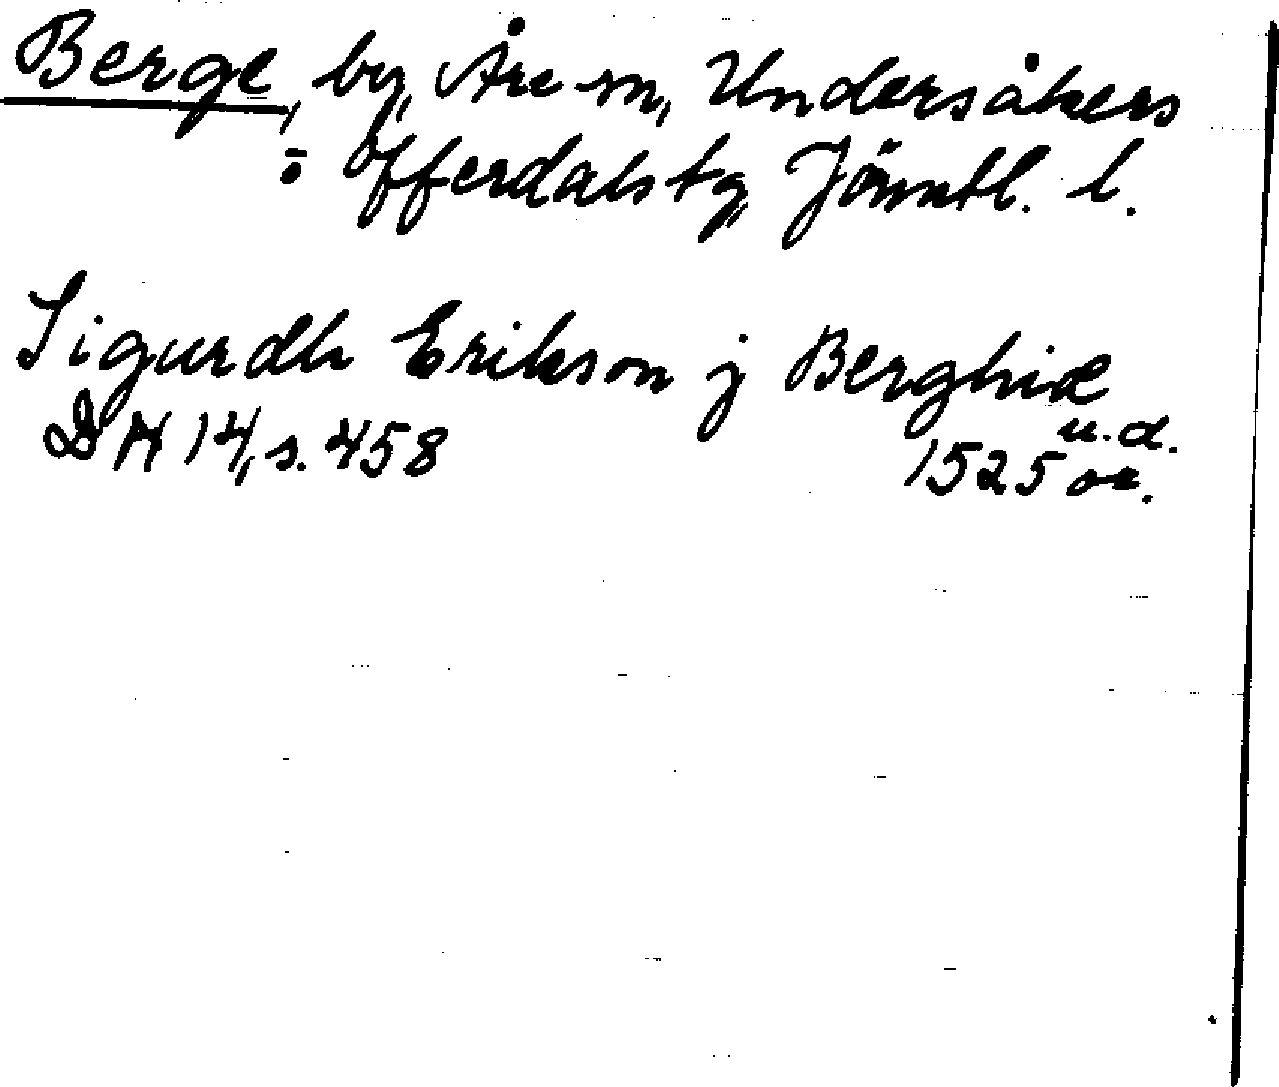 Berge, by, Åre sn, Undersåkers
o. Offerdals tg, Jämtl. l.
Sigurdh Erikson j Berghiæ
u. d.
DN 14, s. 458 1525 or.